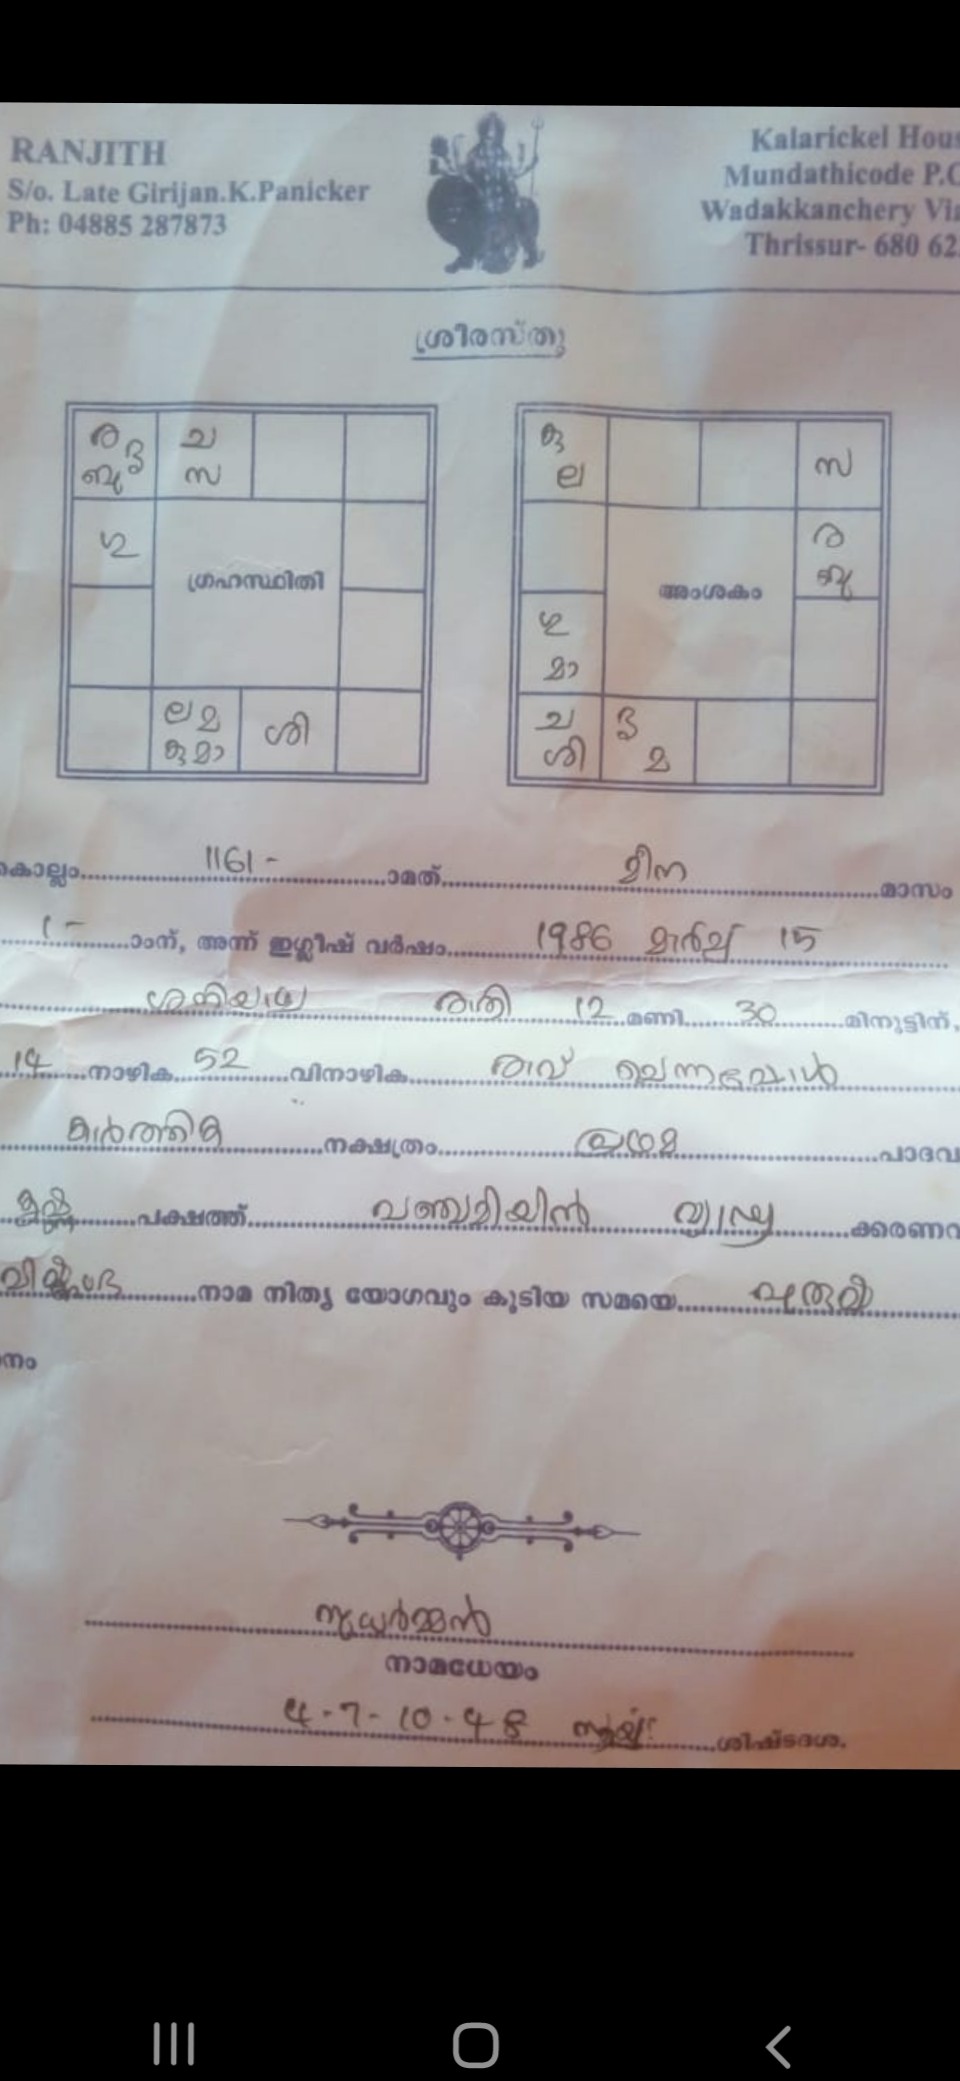 RANJITH
S/o. Late Girijan.K.Panicker
Ph: 04885 287873
Kalarickel Hous
Mundathicode P.O
Wadakkanchery Via
Thrissur- 680 62
ശ്രീരസ്തു
ര ദ്ര ച
ബു സ
ശു
ഗ്രഹസ്ഥിതി
ല മ ശി
കു മാ
കു സ
ല
ര
ബു
അംശകം
ശു
മാ
ച ദ്ര
ശി മ
കൊല്ലം 1161 - ാമത് മീന മാസം
1 - ാംന്, അന്ന് ഇഗ്ലീഷ് വർഷം 1986 മാർച്ച് 15
ശനിയാഴ്ച രാത്രി 12 മണി 30 മിനുട്ടിന്,
14 നാഴിക 52 വിനാഴിക രാവ് ചെന്നപ്പോൾ
കാർത്തിക നക്ഷത്രം പ്രഥമ പാദവ
പക്ഷത്ത് പഞ്ചമിയിൻ ക്കരണവ
നാമ നിതൃ യോഗവും കൂടിയ സമയെ
നം
സുധർമ്മൻ
നാമധേയം
4-7-10-48 ശിഷ്ടദശ.